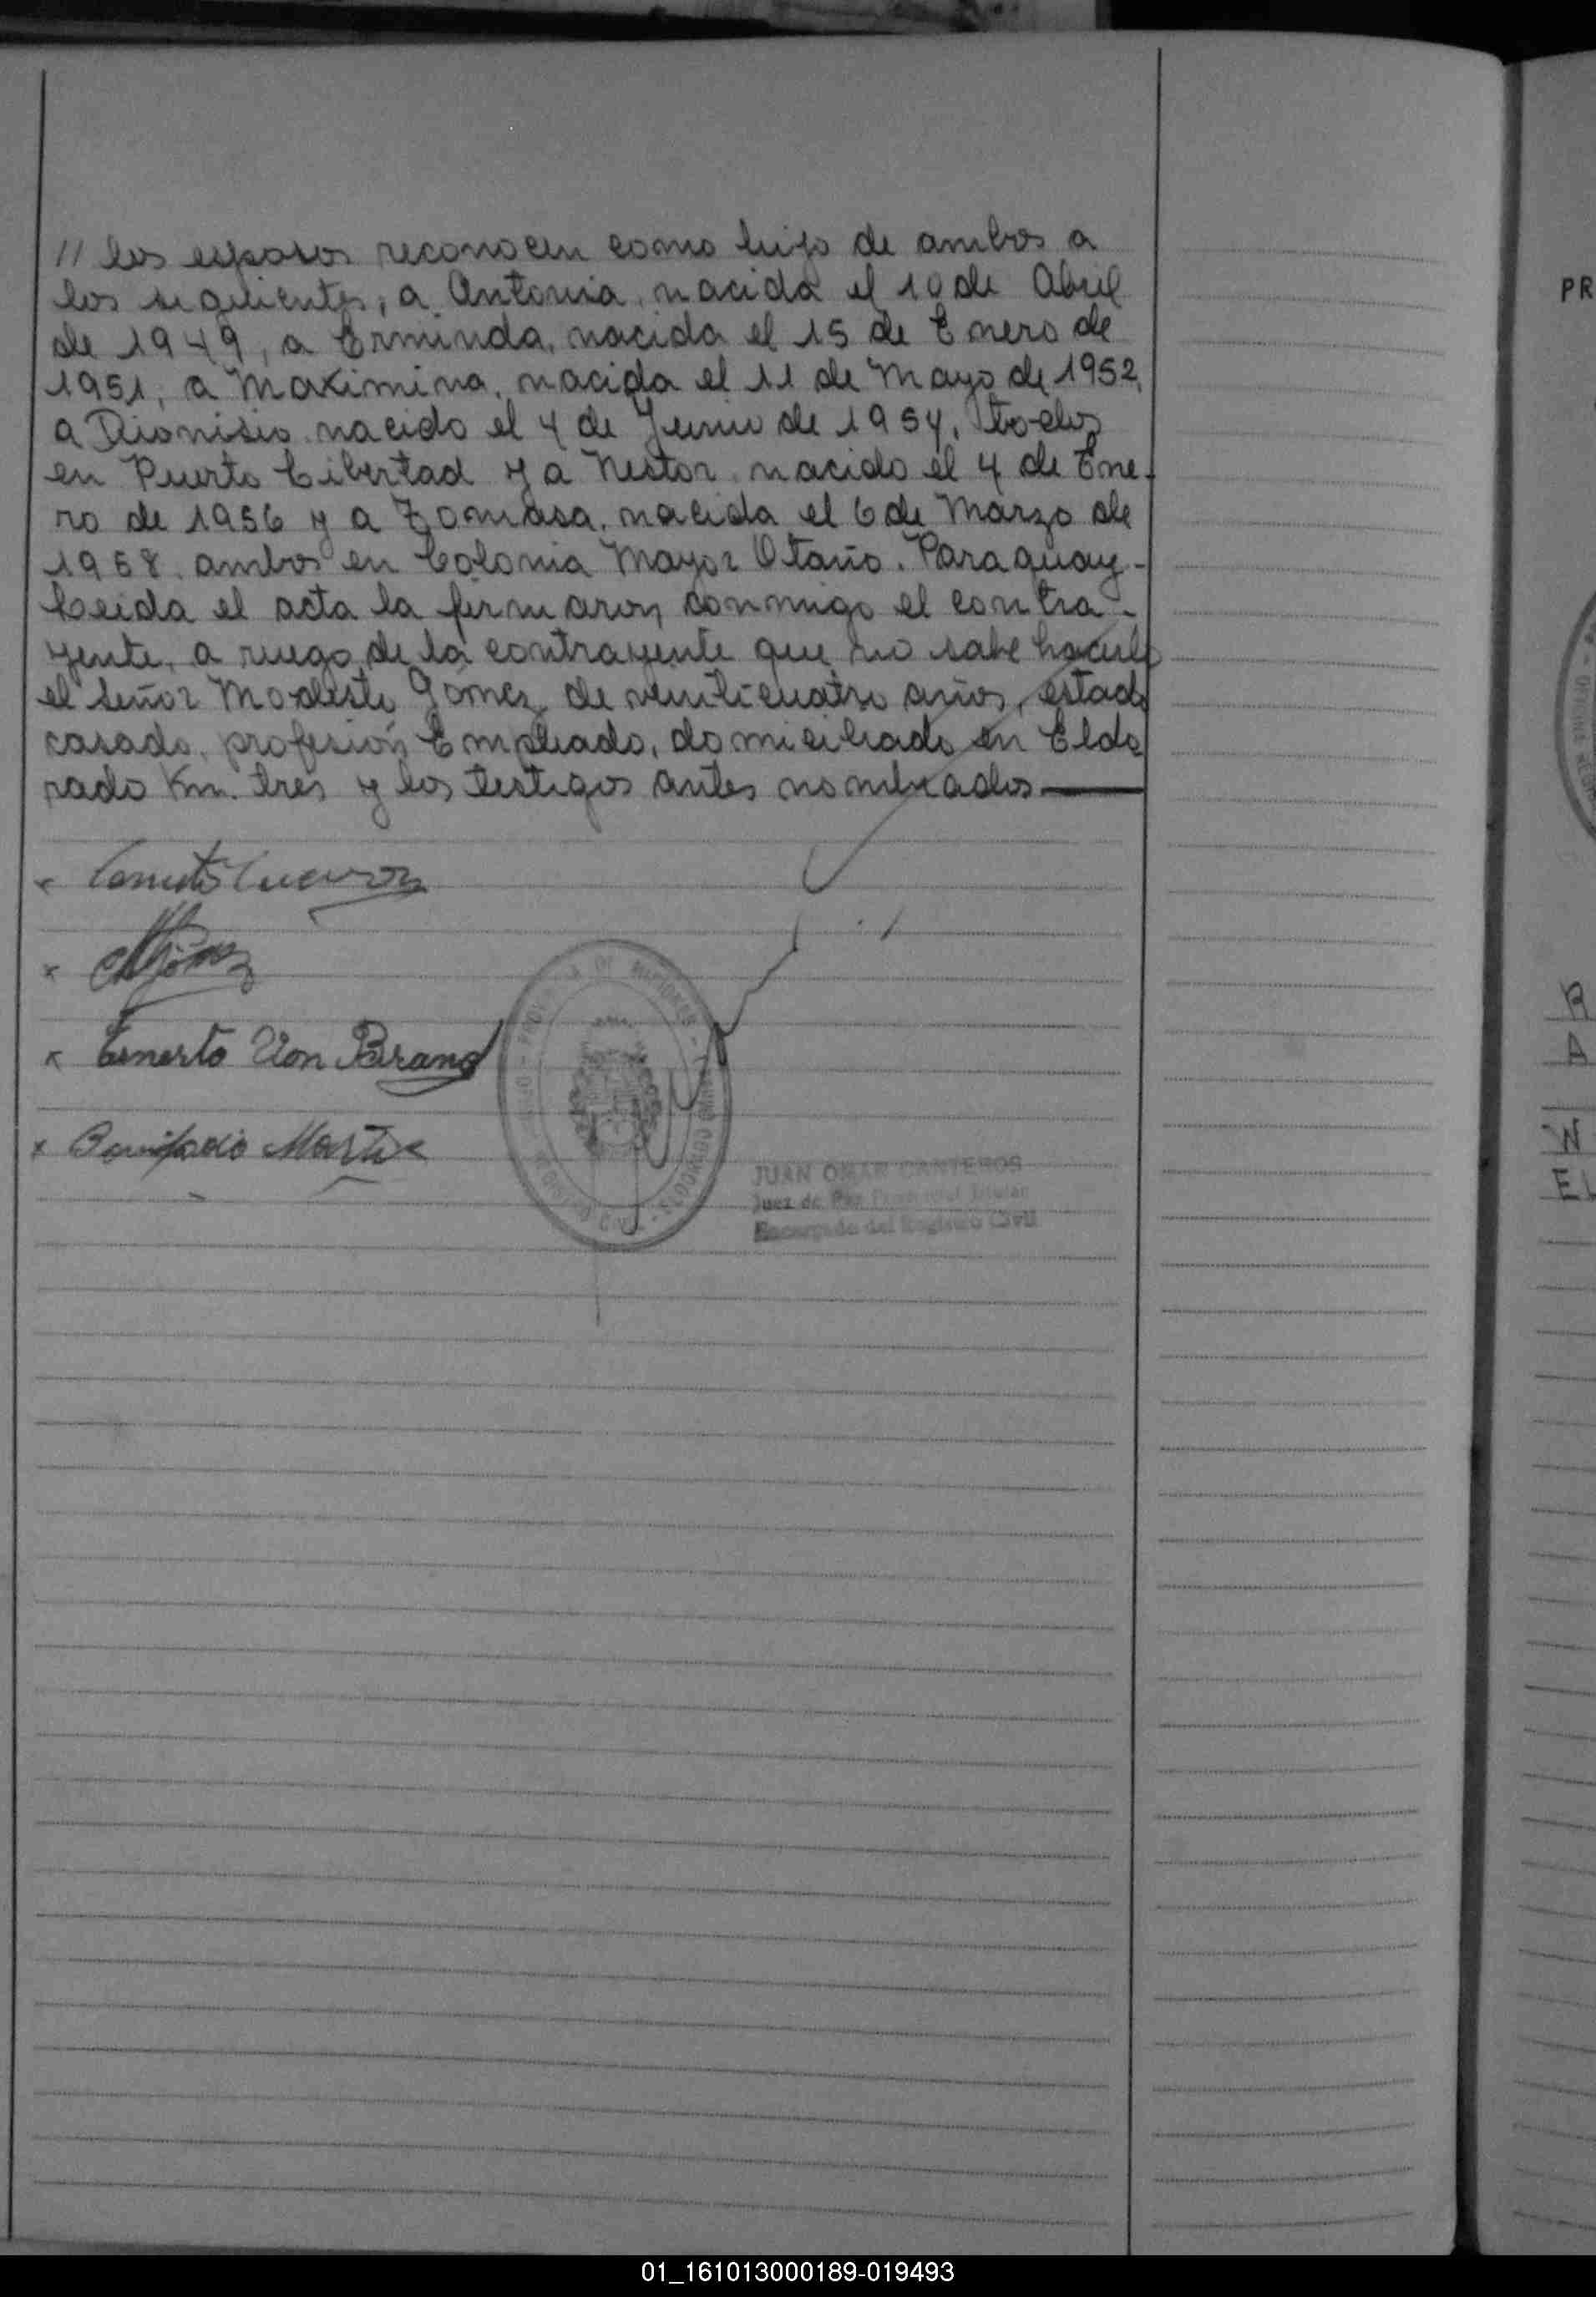 // los esposos reconocen como hijo de ambos a
los siguientes, a Antonia, nacida el 10 de Abril
de 1949, a Erminda, nacida el 15 de Enero de
1951, a Maximina, nacida el 11 de Mayo de 1952,
a Dionisio nacido el 4 de Junio de 1954, todos
en Puerto Libertad y a Nestor, nacido el 4 de Ene-
ro de 1956 y a Tomasa, nacida el 6 de Marzo de
1958, ambos en Colonia Mayor Otaño. Paraguay-
Leida el acta la firmaron conmigo el contra-
yente, a ruego de la contrayente que no sabe hacerlo
el señor Modesto Gómez, de veinticuatro años, estado
casado, profesión Empleado, domiciliado en Eldo
rado Km. tres y los testigos antes nombrados
x
x Gómez
x Ernesto Von Brand
x Bonifacio
JUAN OMAR CANTEROS
Juez de Paz Titular
Encargado del Registro Civil
PR
R
A
W
EL
01_161013000189-019493